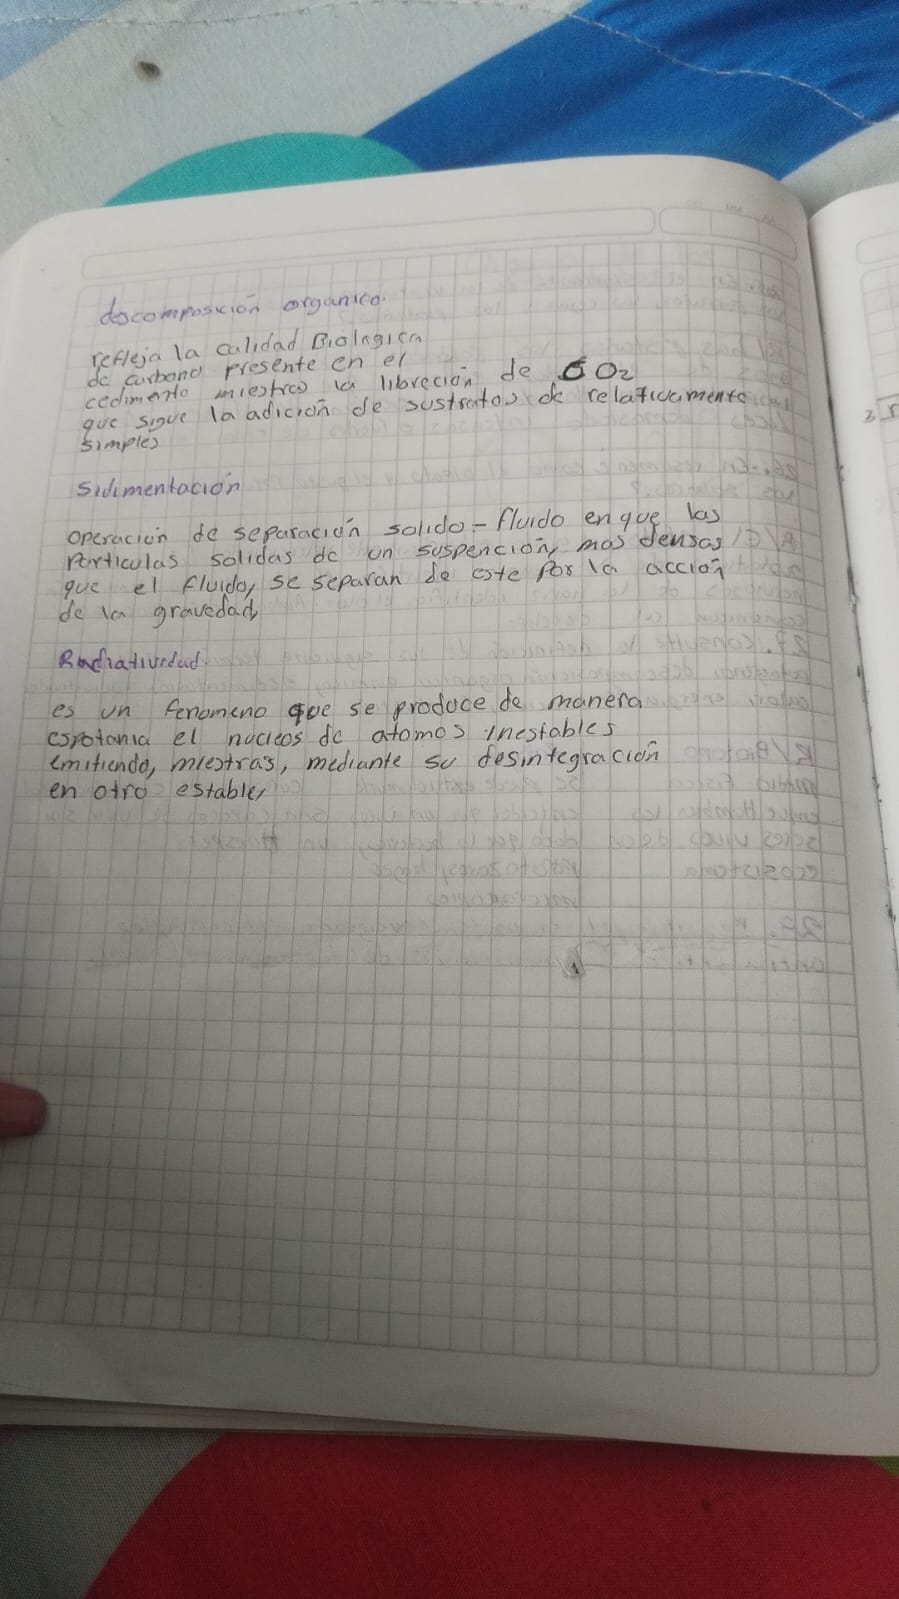 descomposición organica.
refleja la calidad Biologica
de carbono presente en el
cedimento miestras la libreción de CO2
que sigue la adición de sustratos de relativamente
simples
Sidimentación
operación de separación solido - fluido en que las
Particulas solidas de un suspención, mas densas
que el fluido, se separan de este por la acción
de la gravedad,
Radiatividad.
es un fenomeno que se produce de manera
espotania el nucleos de atomos inestables
emitiendo, miestras, mediante su desintegración
en otro estable,